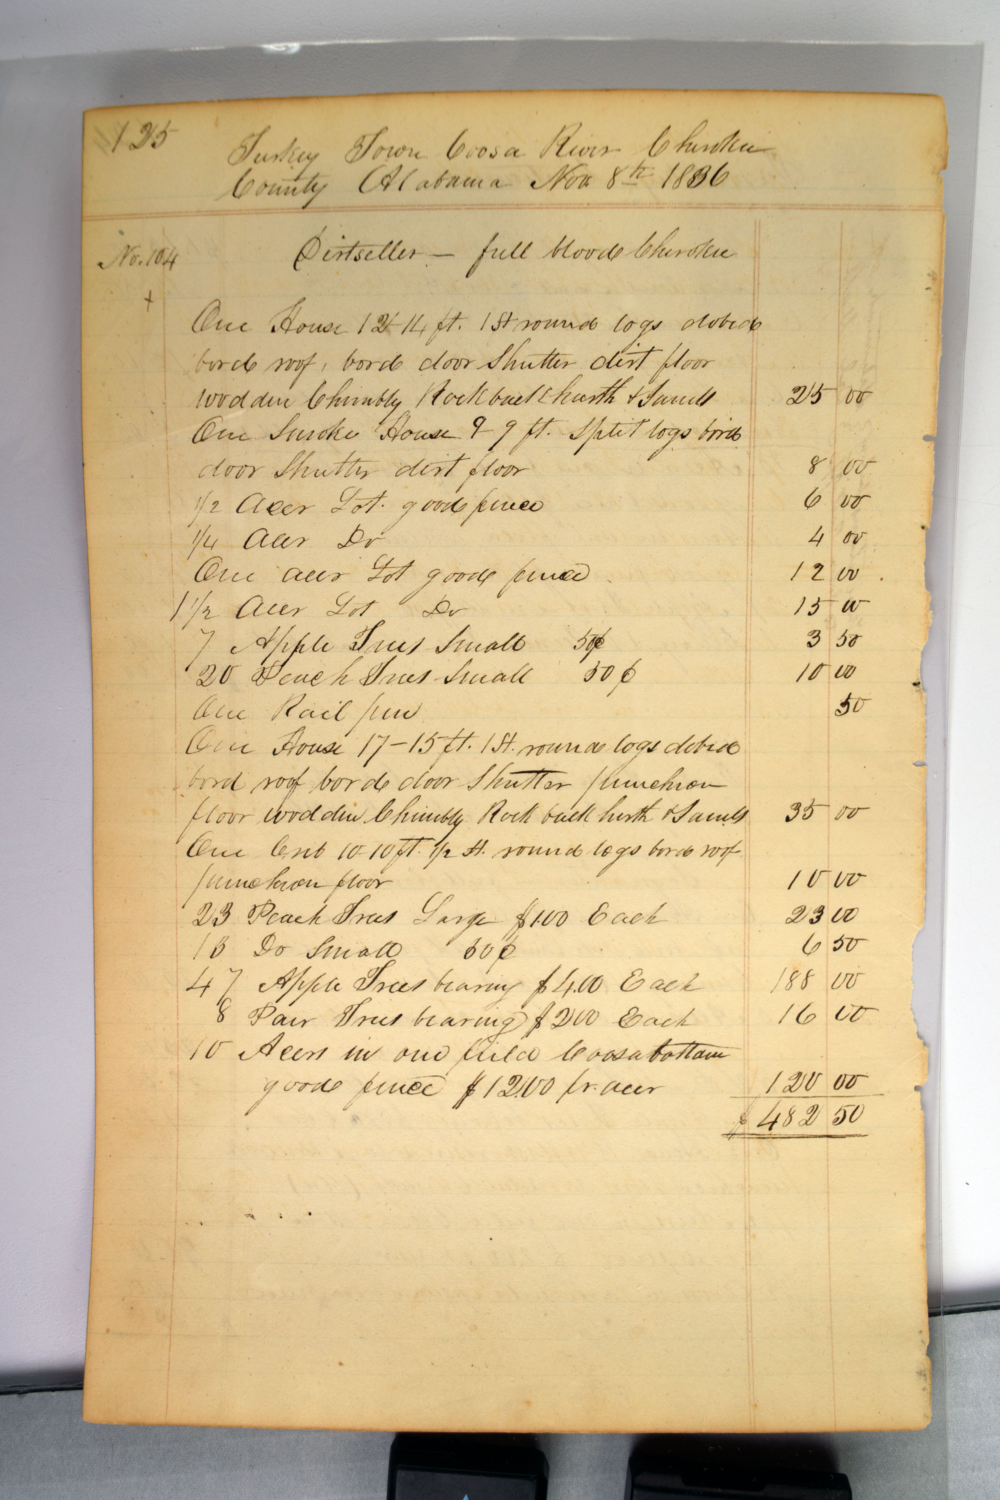 125
Turkey Town Coosa River Cherokee
County Alabama Nov 8th 1836
No. 104 Dirtseller — full blood Cherokee
+
One House 12-14 ft. 1 St. round logs dobed
bord roof, bord door Shutter dirt floor
wodden Chimbly Rock back hearth & Jambs 25 00
One Smoke House 9-9 ft. Split logs bord
door Shutter dirt floor 8 00
1/2 Acer Lot. good fence 6 00
1/4 Acer Do 4 00
One acer Lot good fence 12 00
1 1/2 Acer Lot Do 15 00
7 Apple Trees Small 50¢ 3 50
20 Peach Trees Small 50¢ 10 00
One Rail pen 50
One House 17-15 ft. 1 St. round logs dobed
bord roof bord door Shutter puncheon
floor wodden Chimbly Rock back herth & Jambs 35 00
One Crib 10-10 ft. 1/2 St. round logs bord roof
puncheon floor 10 00
23 Peach Trees Large $1.00 Each 23 00
13 Do Small 50¢ 6 50
47 Apple Trees bearing $4.00 Each 188 00
8 Pair Trees bearing $2.00 Each 16 00
10 Acers in one field Coosa bottom
good fence $12.00 pr. acer 120 00
$ 482 50